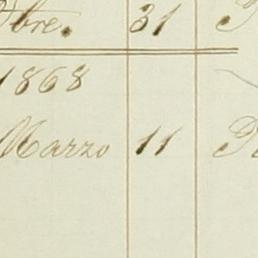 bre. 31
1868
Marzo 11